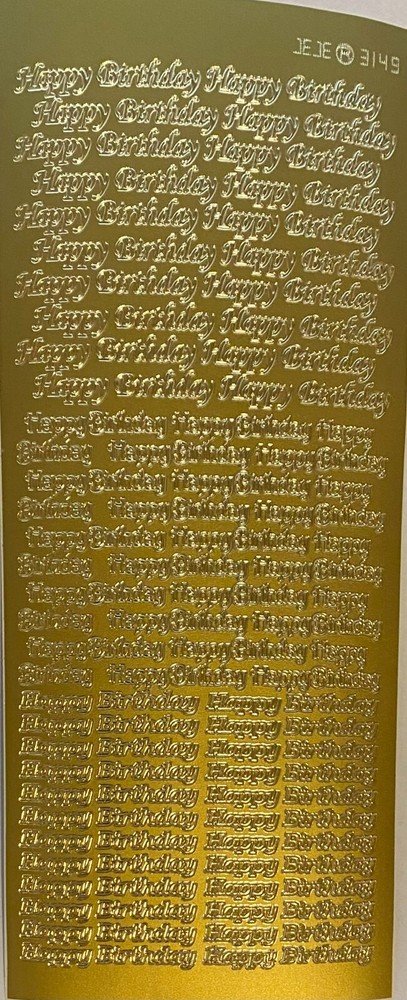 JEJE ® 3149
Happy Birthday Happy Birthday
Happy Birthday Happy Birthday
Happy Birthday Happy Birthday
Happy Birthday Happy Birthday
Happy Birthday Happy Birthday
Happy Birthday Happy Birthday
Happy Birthday Happy Birthday
Happy Birthday Happy Birthday
Happy Birthday Happy Birthday
Happy Birthday Happy Birthday
Happy Birthday Happy Birthday Happy
Birthday Happy Birthday Happy Birthday
Happy Birthday Happy Birthday Happy
Birthday Happy Birthday Happy Birthday
Happy Birthday Happy Birthday Happy
Birthday Happy Birthday Happy Birthday
Happy Birthday Happy Birthday Happy
Birthday Happy Birthday Happy Birthday
Happy Birthday Happy Birthday Happy
Birthday Happy Birthday Happy Birthday
Happy Birthday Happy Birthday
Happy Birthday Happy Birthday
Happy Birthday Happy Birthday
Happy Birthday Happy Birthday
Happy Birthday Happy Birthday
Happy Birthday Happy Birthday
Happy Birthday Happy Birthday
Happy Birthday Happy Birthday
Happy Birthday Happy Birthday
Happy Birthday Happy Birthday
Happy Birthday Happy Birthday
Happy Birthday Happy Birthday